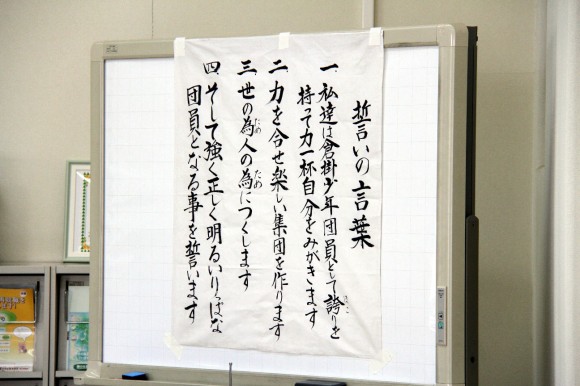 誓いの言葉
一、私達は倉掛少年団員として誇りを
持って力一杯自分をみがきます
二、力を合せ楽しい集団を作ります
三、世の為人の為につくします
四、そして強く正しく明るいりっぱな
団員となる事を誓います